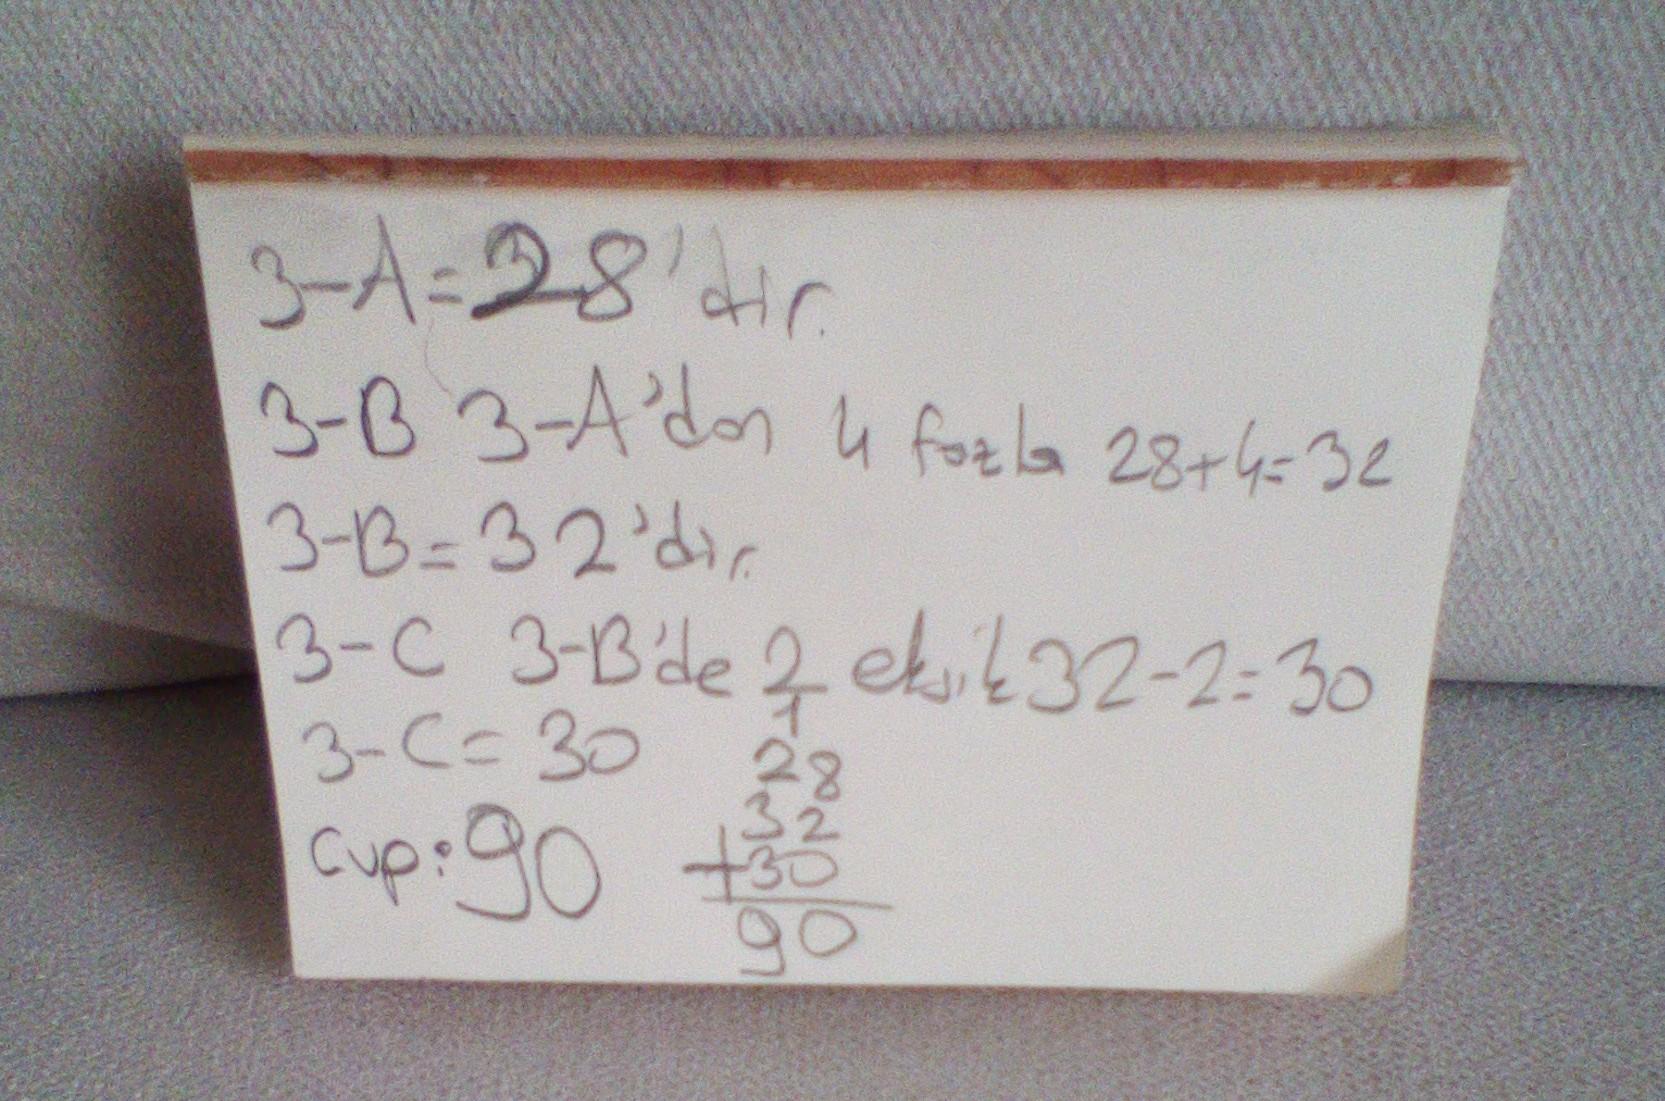 3-A=28'dir.
3-B 3-A'dan 4 fazla 28+4=32
3-B=32'dir.
3-C 3-B'de 2 eksik 32-2=30
3-C=30
1
28
32
+30
90
Cvp:90